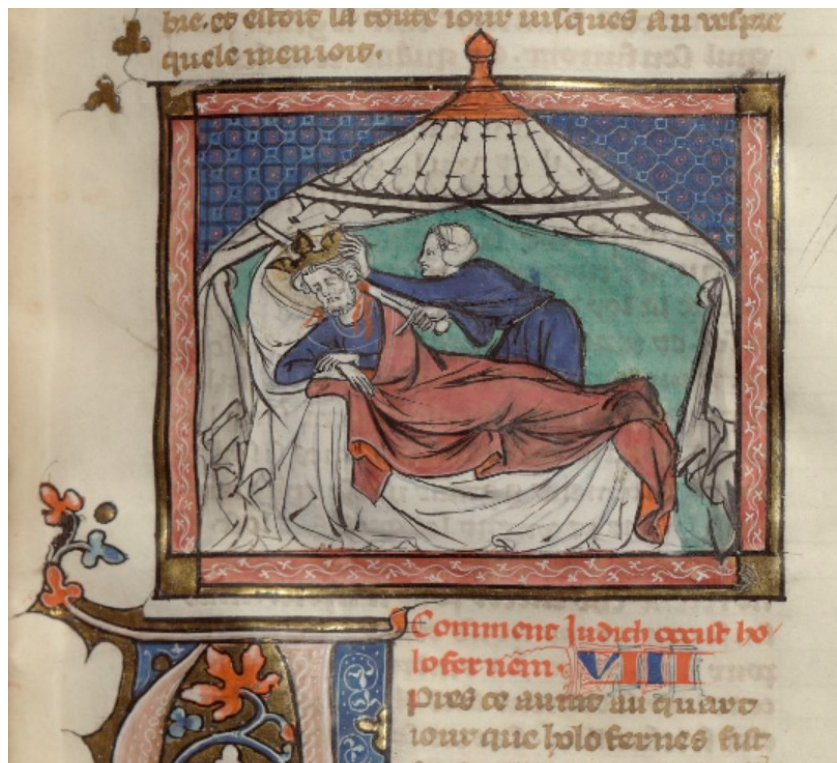 bie. et estoit la toute iour iusques au vespre
quele menioit.
Comment Iudich occist ho
lofernem. VIII
Pres ce auint au quart
iour que holofernes fist